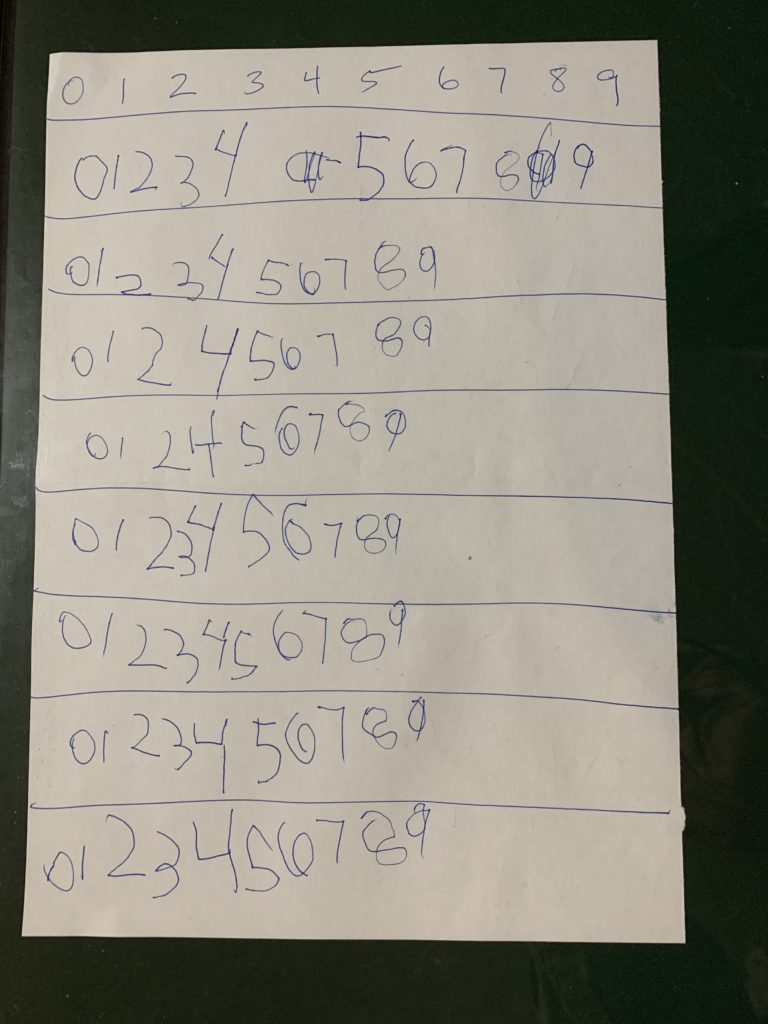 0 1 2 3 4 5 6 7 8 9
01234 567 8 9
01234 567 89
01 2 4567 89
01 24 56789
01 23456789
01 23456789
01 234 56789
0123456789